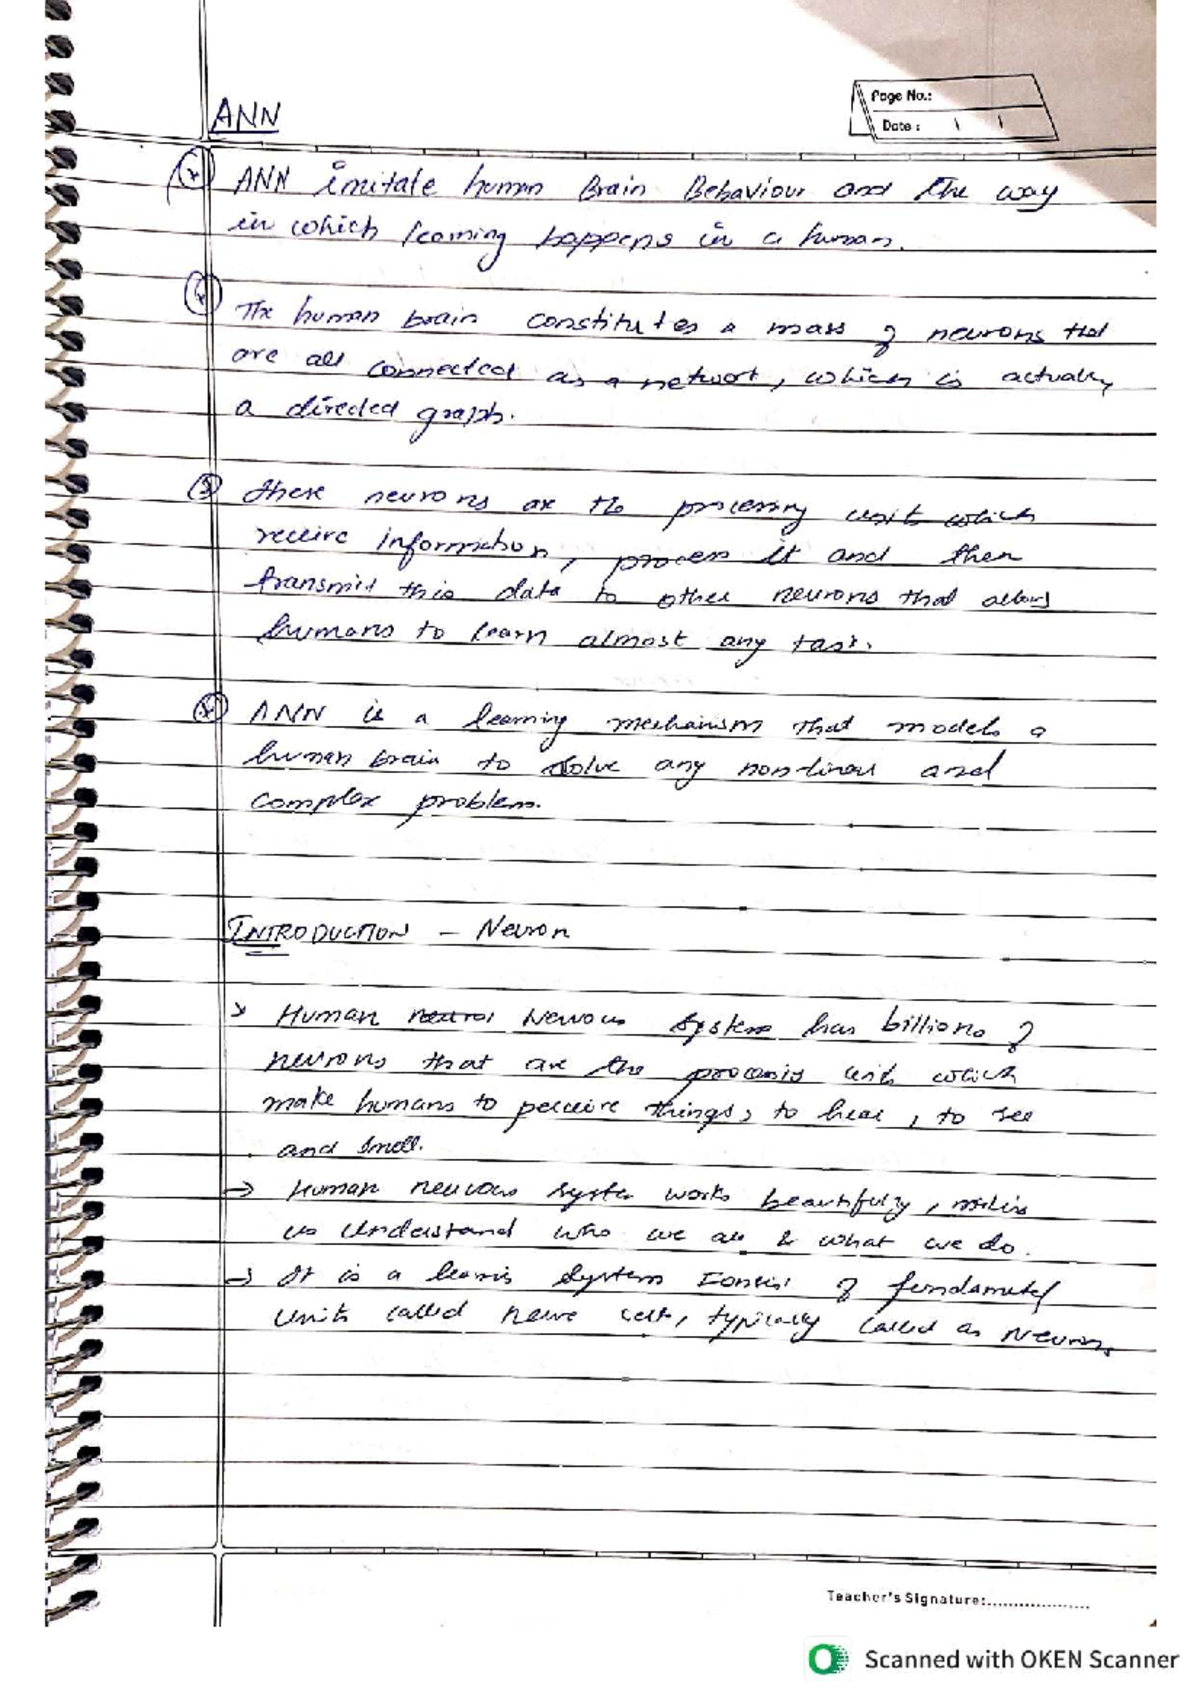 Page No.:
Date : \ \
ANN
ANN imitate human Brain Behaviour and the way
in which learning happens in a human.
The human brain constitutes a mass of neurons that
are all connected as a network, which is actually
a directed graph.
These neurons are the processing unit which
receive information, process it and then
transmit this data to other neurons that allows
humans to learn almost any task.
ANN is a learning mechanism that models a
human brain to solve any non-linear and
complex problem.
INTRODUCTION - Neuron
> Human Nervous System has billions of
neurons that are the processing unit which
make humans to perceive things, to hear, to see
and smell.
→ Human nervous system works beautifully, making
us understand who we are & what we do.
→ It is a learning system consist of fundamental
units called nerve cells, typically called as Neurons,
Teacher's Signature:..................
Scanned with OKEN Scanner